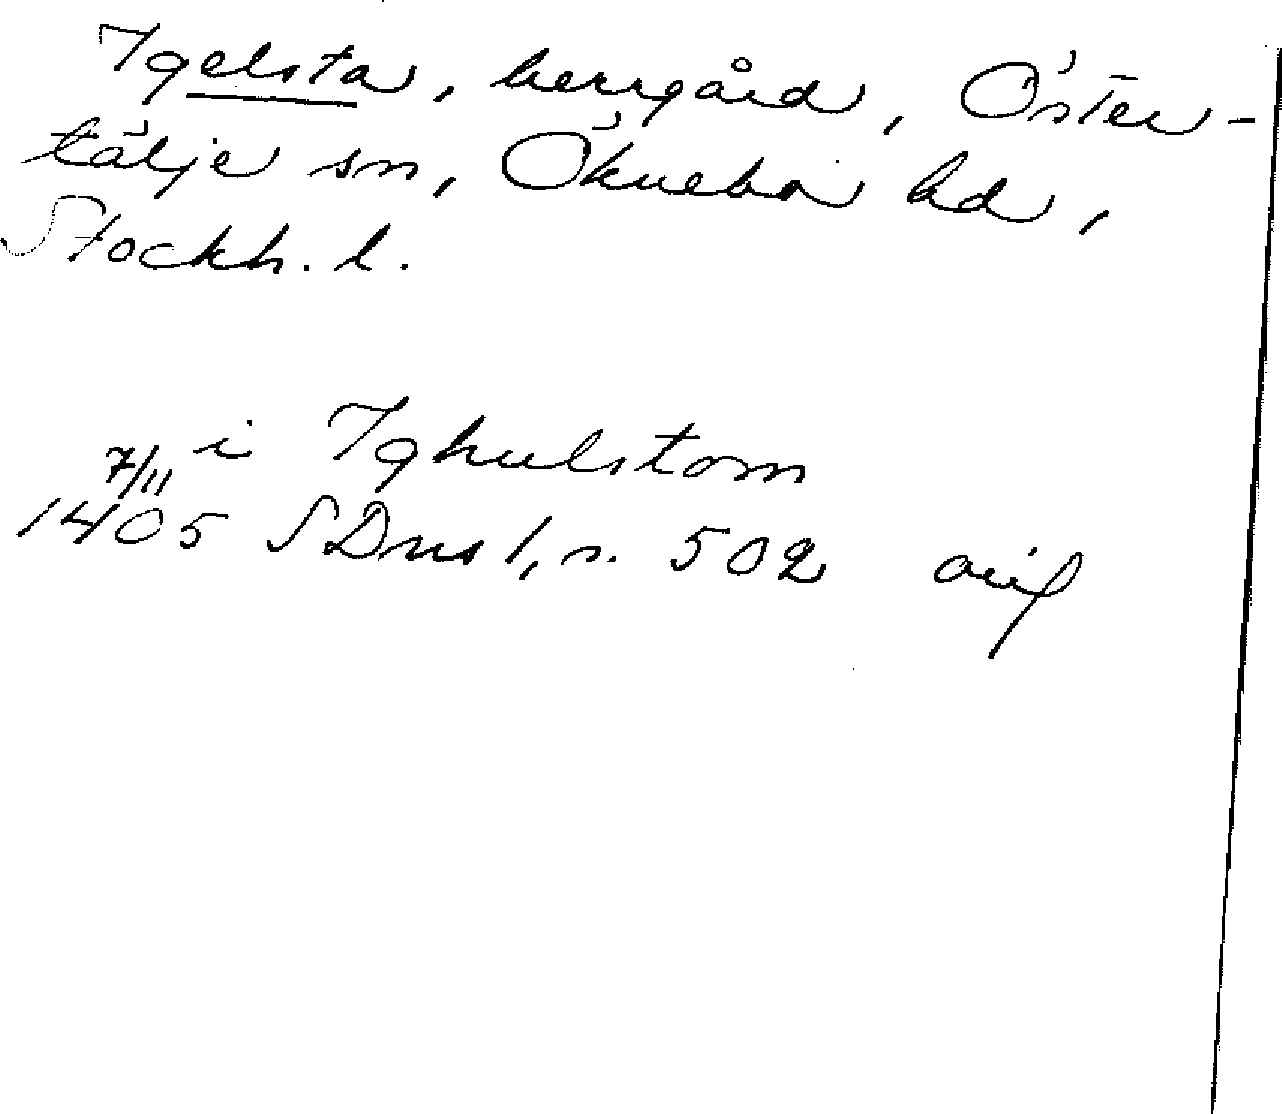 Igelsta, herrgård, Öster-
tälje sn, Öknebo hd,
Stockh. l.
i Ighulstom
7/11
1405 SDns 1, s. 502 avif